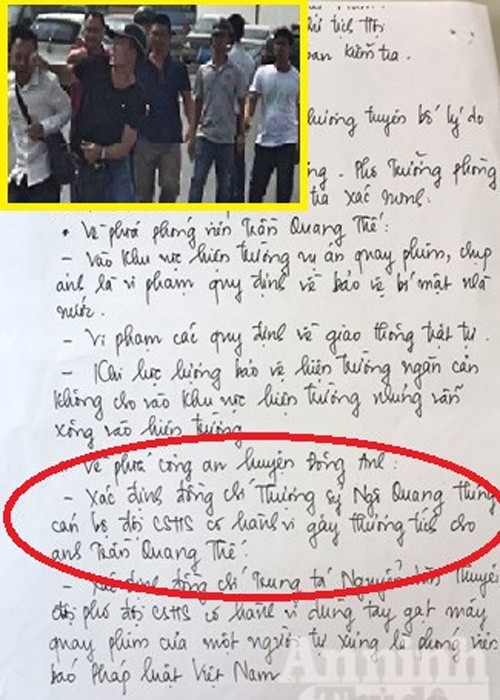 tịch Hội
ban kiểm tra.
tuyên bố lý do
Phó Trưởng phòng
xác minh.
• Về phía phóng viên Trần Quang Thế:
- Vào khu vực hiện trường vụ án quay phim, chụp
ảnh là vi phạm quy định về bảo vệ bí mật nhà
nước.
- Vi phạm các quy định về giao thông trật tự.
- Khi lực lượng bảo vệ hiện trường ngăn cản
không cho vào khu vực hiện trường nhưng vẫn
xông vào hiện trường
Về phía công an huyện Đông Anh:
- Xác định đồng chí Thượng sỹ Ngô Quang Hưng
cán bộ đội CSHS có hành vi gây thương tích cho
anh Trần Quang Thế.
- Xác định đồng chí Trung tá Nguyễn Thuyên
đội phó đội CSHS có hành vi dùng tay gạt máy
quay phim của một người tự xưng là phóng viên
báo Pháp luật Việt Nam
An ninh